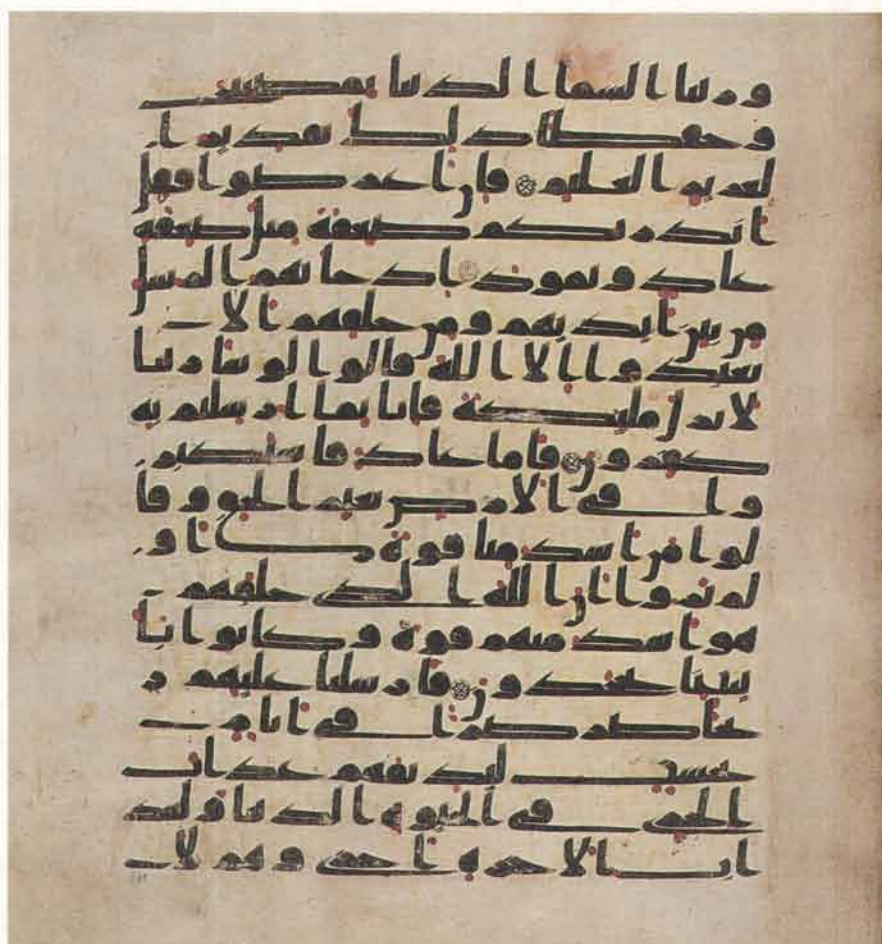 وزينا السما الدنيا بمصبيح
وحفظا ذلك تقدير ا
لعزيز العليم فان اعرضوا فقل
انذرتكم صعقة مثل صعقة
عاد وثمود اذ جاتهم الرسل
من بين ايديهم ومن خلفهم الا
تعبدوا الا الله قالوا لو شا ربنا
لانزل مليكة فانا بما ارسلتم به
كفرون فاما عاد فاستكبر
وا في الارض بغير الحق وقا
لوا من اشد منا قوة او
لم يروا ان الله الذي خلقهم
هو اشد منهم قوة وكانوا با
يتنا يجحدون فارسلنا عليهم ر
يحا صرصرا في ايام
نحسات لنذيقهم عذاب
الخزي في الحيوة الدنيا ولعذ
اب الاخرة اخزى وهم لا